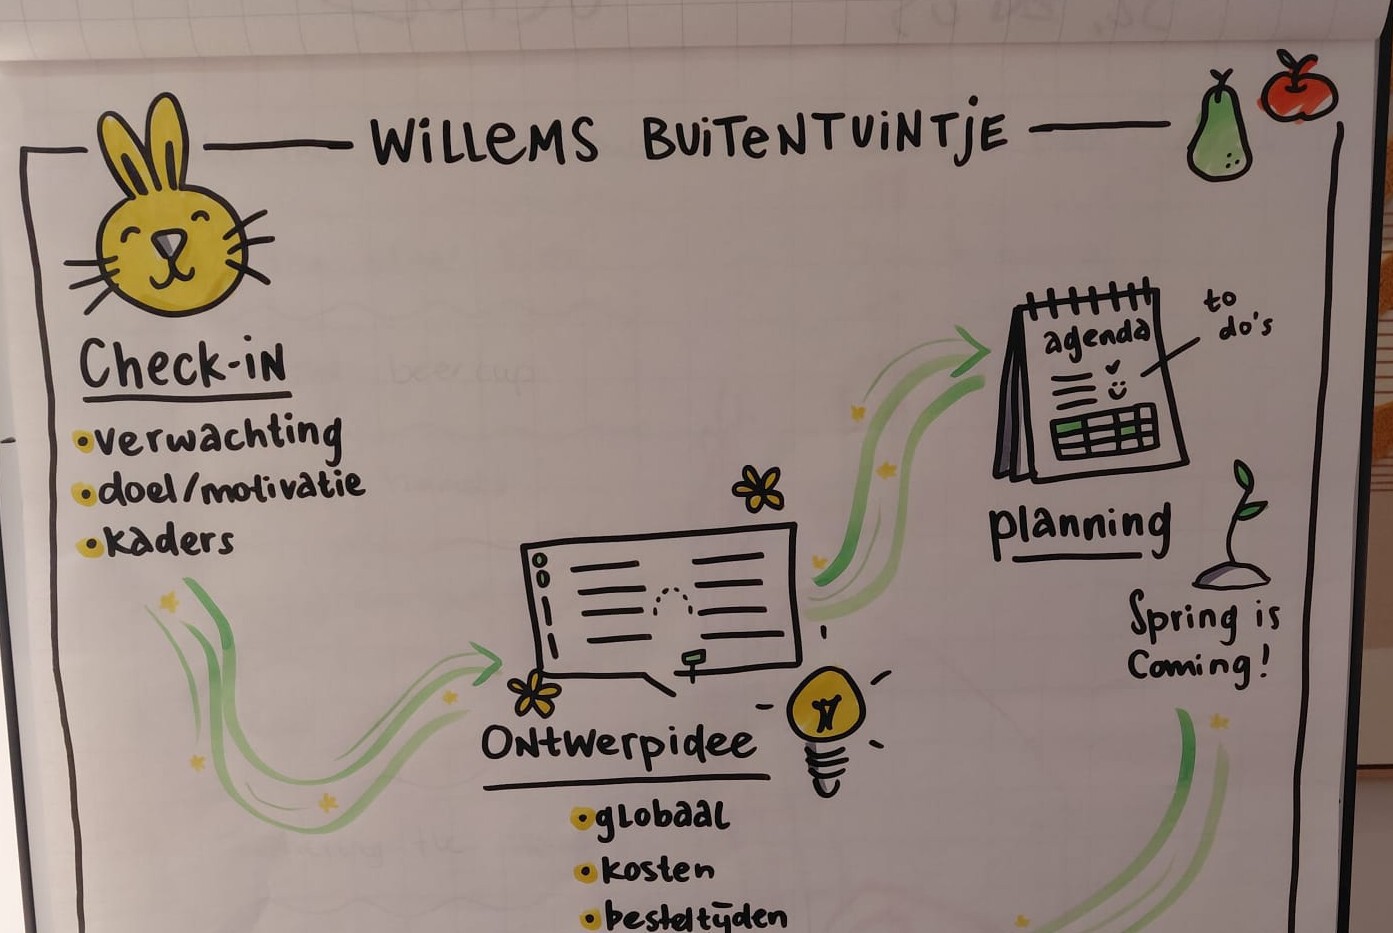 WiLLeMS BUiTeNTUiNTjE
Check-iN
•verwachting
•doel/motivatie
•kaders
agenda
to
do's
planning
Spring is
Coming!
ONtwerpidee
•gLobaaL
•kosten
•besteltijden